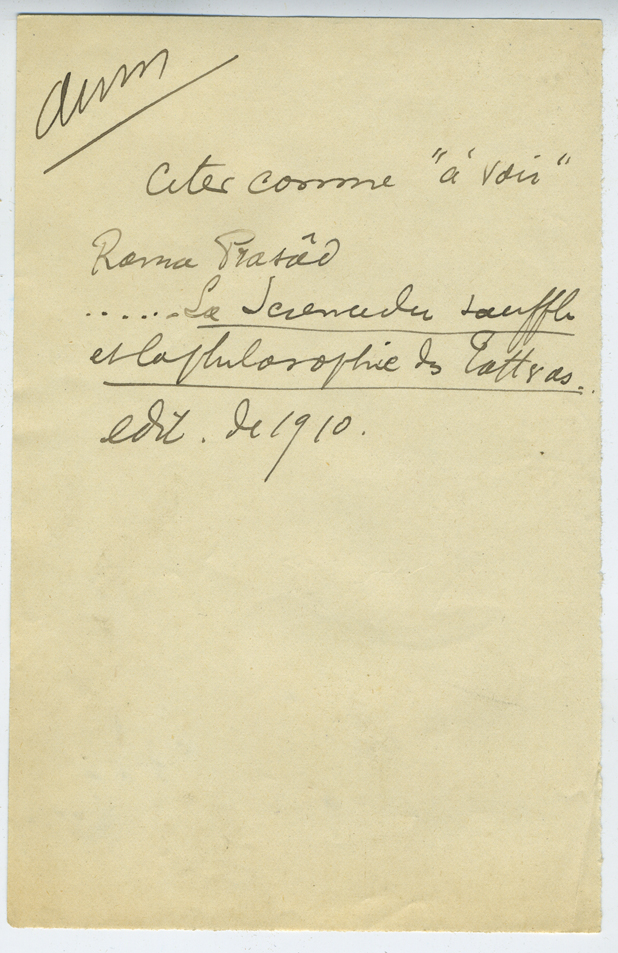 Citer comme "à voir"
Rama Prasâd
......La Science du souffle
et la philosophie des Tattvas.
edit. de 1910.